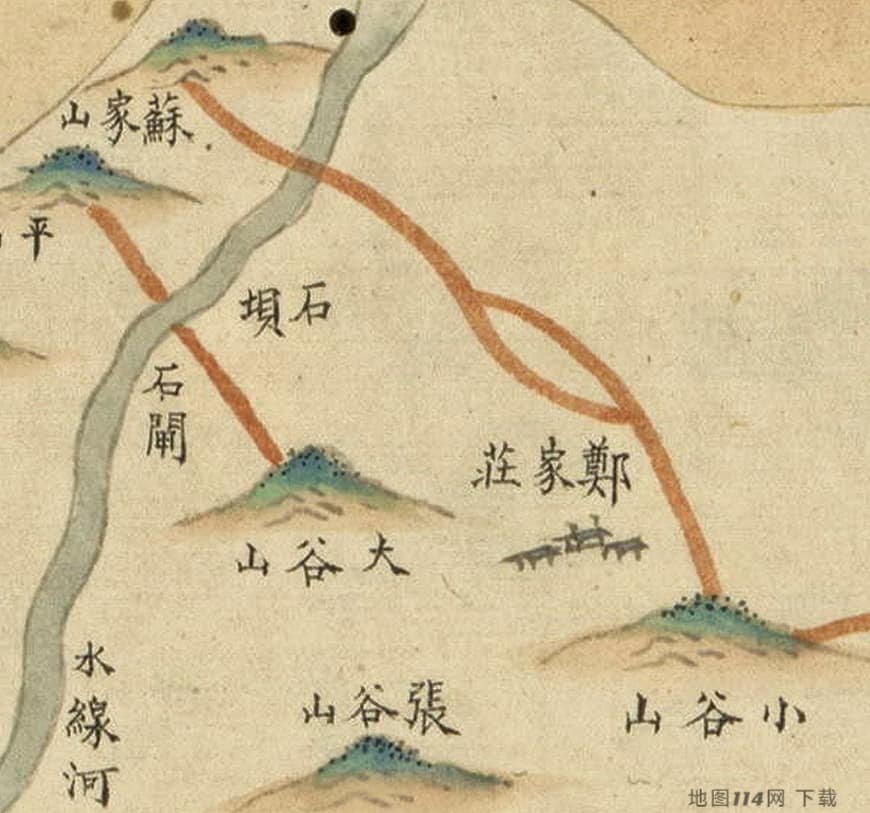 蘇家山
平
石垻
石閘
鄭家莊
大谷山
水線河
張谷山
小谷山
地图114网 下载